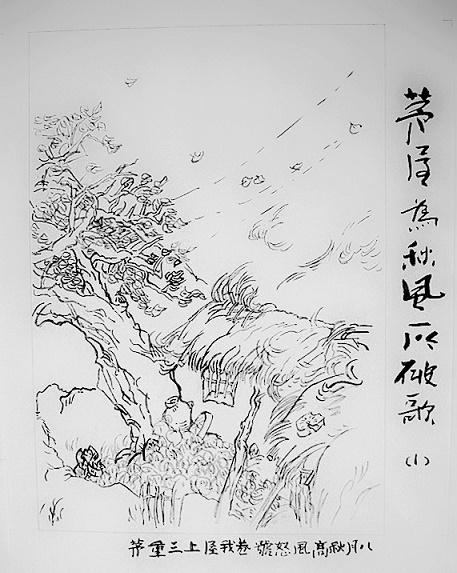 茅屋為秋風所破歌
(1)
八月秋高風怒號卷我屋上三重茅